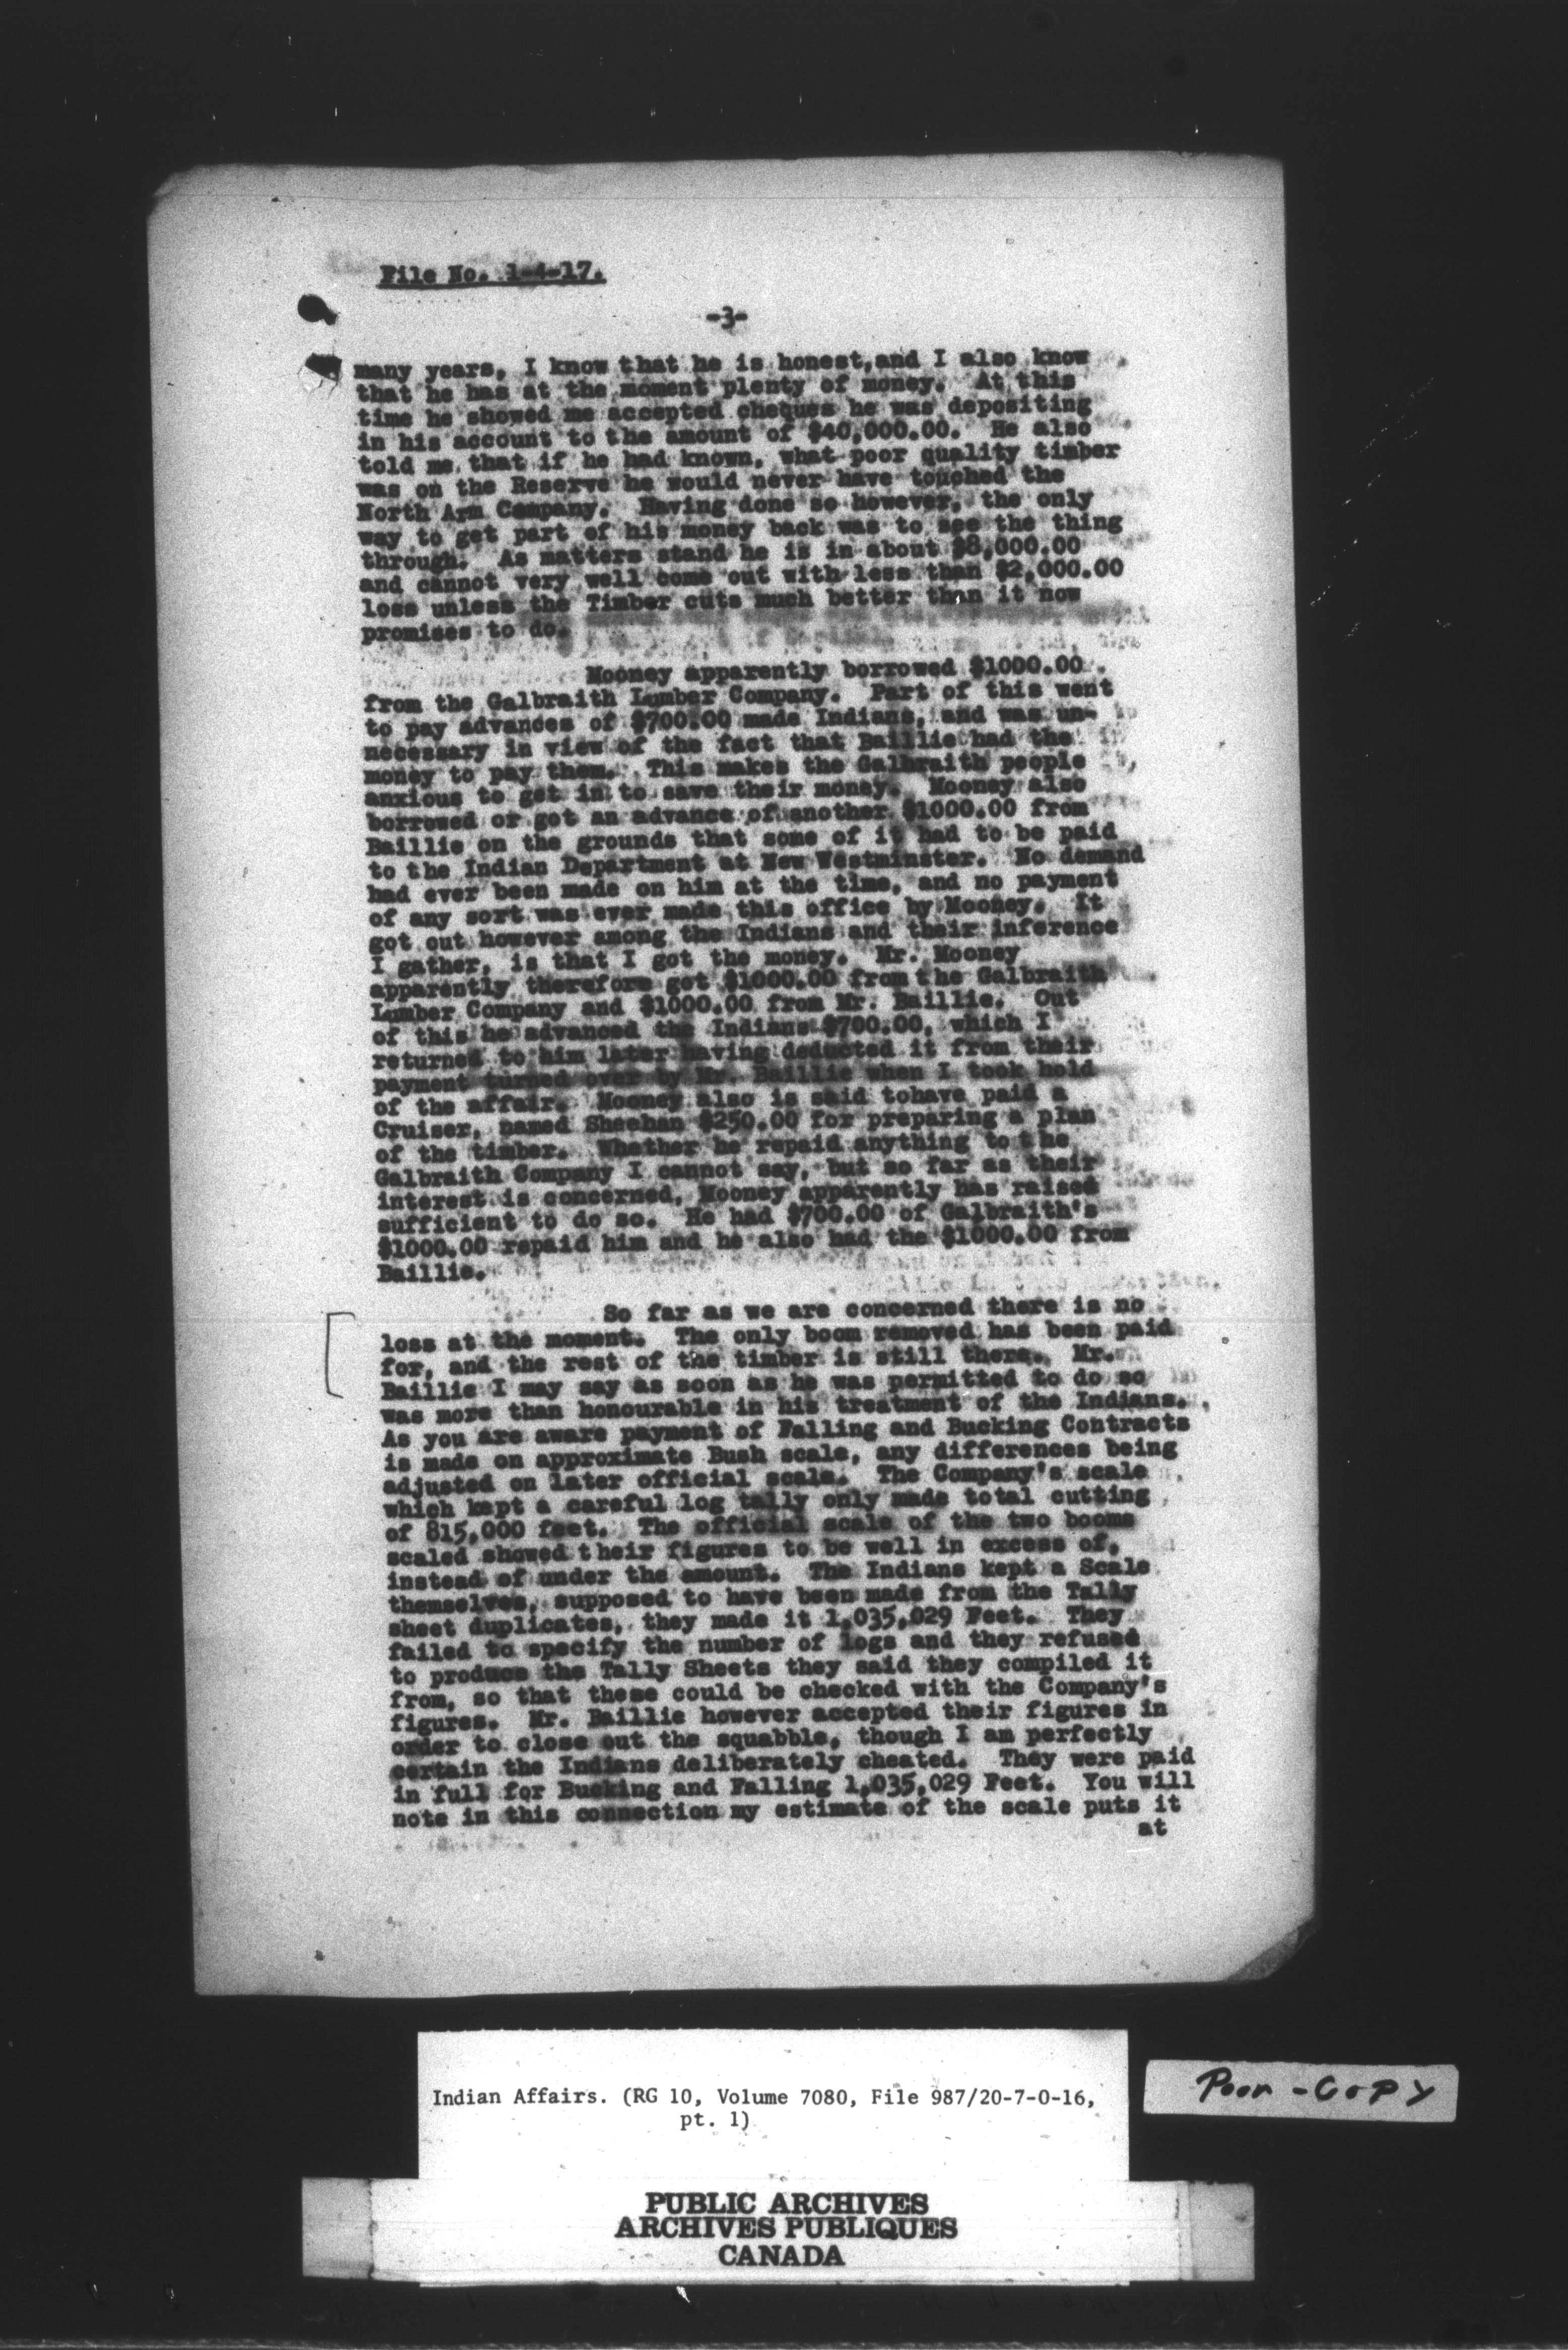 File No. 1-4-17.
-3-
many years, I know that he is honest,and I also know
that he has at the moment plenty of money. At this
time he showed me accepted cheques he was depositing
in his account to the amount of $40,000.00. He also
told me, that if he had known, what poor quality timber
was on the Reserve he would never have touched the
North Arm Company. Having done so however, the only
way to get part of his money back was to see the thing
through. As matters stand he is in about $8,000.00
and cannot very well come out with less than $2,000.00
loss unless the Timber cuts much better than it now
promises to do.
Mooney apparently borrowed $1000.00
from the Galbraith Lumber Company. Part of this went
to pay advances of $700.00 made Indians, and was un-
necessary in view of the fact that Baillie had the
money to pay them. This makes the Galbraith people
anxious to get in to save their money. Mooney also
borrowed or got an advance of another $1000.00 from
Baillie on the grounds that some of it had to be paid
to the Indian Department at New Westminster. No demand
had ever been made on him at the time, and no payment
of any sort was ever made this office by Mooney. It
got out however among the Indians and their inference
I gather, is that I got the money. Mr. Mooney
apparently therefore got $1000.00 from the Galbraith
Lumber Company and $1000.00 from Mr. Baillie. Out
of this he advanced the Indians $700.00, which I
returned to him later having deducted it from their
payment turned over by Mr. Baillie when I took hold
of the affair. Mooney also is said tohave paid a
Cruiser, named Sheehan $250.00 for preparing a plan
of the timber. Whether he repaid anything to the
Galbraith Company I cannot say, but so far as their
interest is concerned, Mooney apparently has raised
sufficient to do so. He had $700.00 of Galbraith's
$1000.00 repaid him and he also had the $1000.00 from
Baillie.
So far as we are concerned there is no
loss at the moment. The only boom removed has been paid
for, and the rest of the timber is still there. Mr.
Baillie I may say as soon as he was permitted to do so
was more than honourable in his treatment of the Indians.
As you are aware payment of Falling and Bucking Contracts
is made on approximate Bush scale, any differences being
adjusted on later official scale. The Company's scale
which kept a careful log tally only made total cutting
of 815,000 feet. The official scale of the two booms
scaled showed their figures to be well in excess of,
instead of under the amount. The Indians kept a Scale
themselves, supposed to have been made from the Tally
sheet duplicates, they made it 1,035,029 Feet. They
failed to specify the number of logs and they refused
to produce the Tally Sheets they said they compiled it
from, so that these could be checked with the Company's
figures. Mr. Baillie however accepted their figures in
order to close out the squabble, though I am perfectly
certain the Indians deliberately cheated. They were paid
in full for Bucking and Falling 1,035,029 Feet. You will
note in this connection my estimate of the scale puts it
at
Indian Affairs. (RG 10, Volume 7080, File 987/20-7-0-16,
pt. 1)
Poor - COPY
PUBLIC ARCHIVES
ARCHIVES PUBLIQUES
CANADA